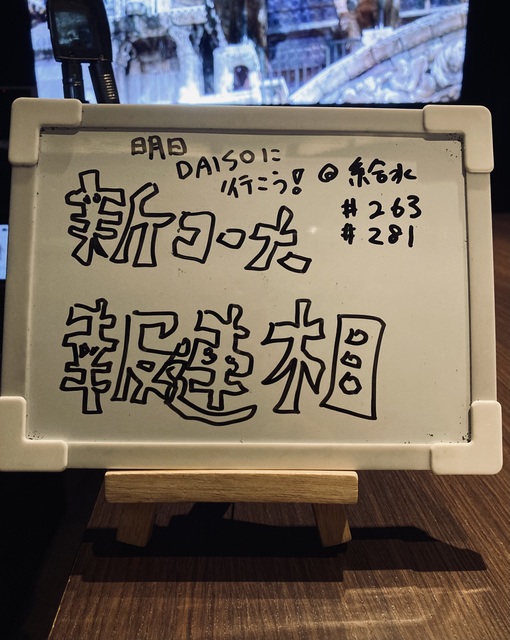 明日
DAISOに
行こう!
@ 給水
# 263
# 281
新ヨーク
報建相